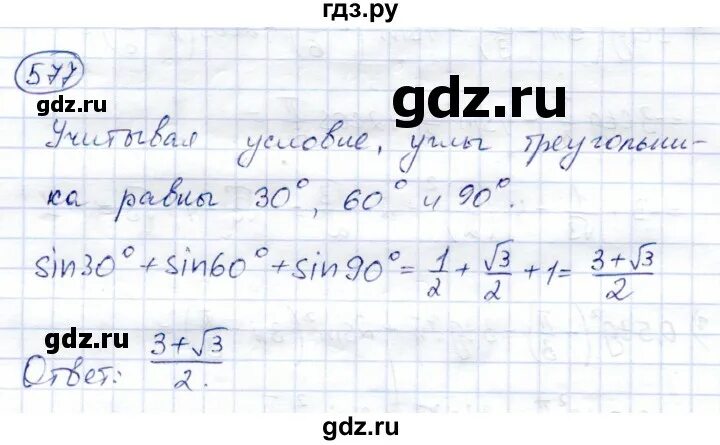 гдз.ру
577
gdz.ru
gdz.ru
Учитывая условие, углы треугольни-
ка равны 30°, 60° и 90°.
sin30° + sin60° + sin90° = 1/2 + √3/2 + 1 = 3+√3/2
gdz.ru
gdz.ru
Ответ: 3+√3/2.
gdz.ru